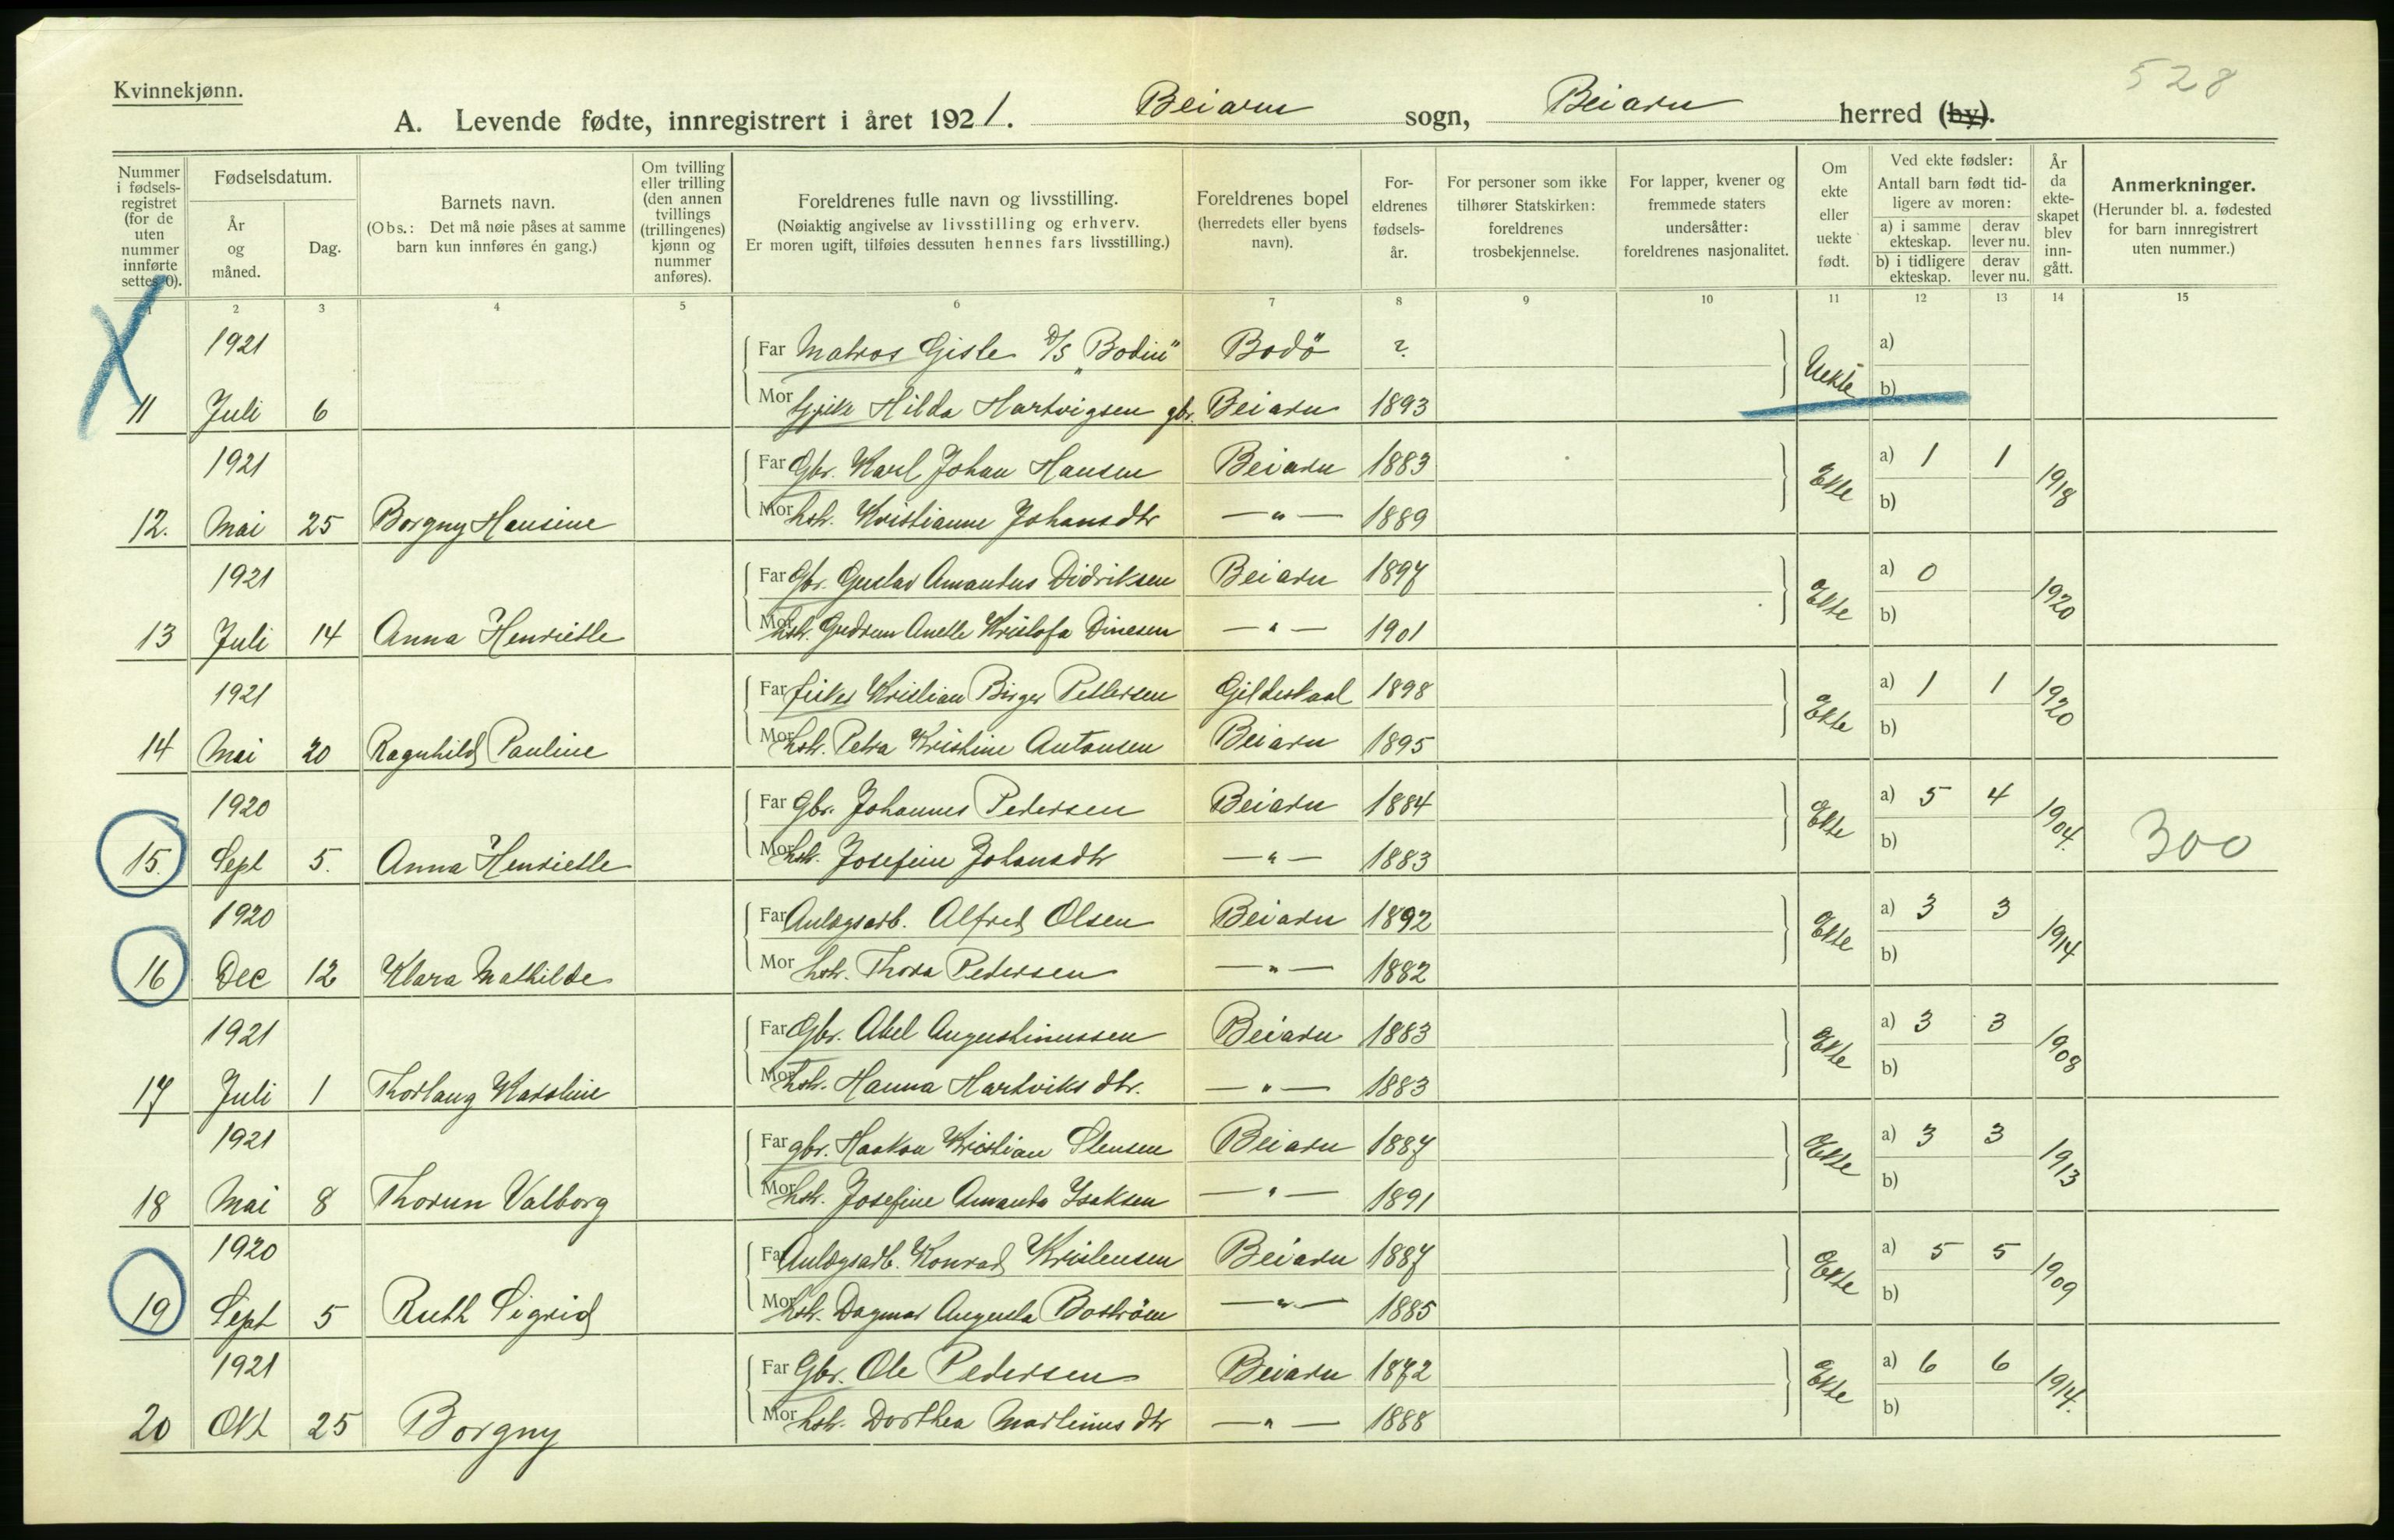 528
Kvinnekjønn.
A. Levende fødte, innregistrert i året 1921. Beiarn sogn, Beiarn herred (by).
Nummer i fødsels-registret (for de uten nummer innførte settes 0).
Fødselsdatum.
År og måned.
Dag.
Barnets navn.
(Obs.: Det må nøie påses at samme barn kun innføres én gang.)
Om tvilling eller trilling (den annen tvillings (trillingenes) kjønn og nummer anføres).
Foreldrenes fulle navn og livsstilling.
(Nøiaktig angivelse av livsstilling og erhverv.
Er moren ugift, tilføies dessuten hennes fars livsstilling.)
Foreldrenes bopel (herredets eller byens navn).
For-eldrenes fødsels-år.
For personer som ikke tilhører Statskirken: foreldrenes trosbekjennelse.
For lapper, kvener og fremmede staters undersåtter: foreldrenes nasjonalitet.
Om ekte eller uekte født.
Ved ekte fødsler: Antall barn født tid-ligere av moren:
a) i samme ekteskap. derav lever nu.
b) i tidligere ekteskap. derav lever nu.
År da ekte-skapet blev inn-gått.
Anmerkninger.
(Herunder bl. a. fødested for barn innregistrert uten nummer.)
1 2 3 4 5 6 7 8 9 10 11 12 13 14 15
1921 Far Matros Gisle D/S "Bodin" Bodö ? Uekte a)
11 Juli 6 Mor Hilda Hartvigsen gbr. Beiarn 1893 b)
1921 Far Gbr. Karl Johan Hansen Beiarn 1883 Ekte a) 1 1 1918
12. Mai 25 Borgny Hansine Mor hstr. Kristianne Johansdtr —"— 1889 b)
1921 Far Gbr. Gustav Amandus Didriksen Beiarn 1897 Ekte a) 0 1920
13 Juli 14 Anna Henriette Mor hstr. Gudrun Anette Kristofa Dinesen —"— 1901 b)
1921 Far fisker Kristian Birger Pettersen Gildeskaal 1898 Ekte a) 1 1 1920
14 Mai 20 Ragnhild Pauline Mor hstr. Petra Kristine Antonsen Beiarn 1895 b)
1920 Far Gbr. Johannes Pedersen Beiarn 1884 Ekte a) 5 4 1904. 300
15. Sept 5. Anna Henriette Mor hstr. Josefine Johansdtr —"— 1883 b)
1920 Far Anlægsarb. Alfred Olsen Beiarn 1892 Ekte a) 3 3 1914
16 Dec 12 Klara Mathilde Mor hstr. Thora Pedersen —"— 1882 b)
1921 Far Gbr. Abel Augustinussen Beiarn 1883 Ekte a) 3 3 1908
17 Juli 1 Thorlaug Karoline Mor hstr. Hanna Hartviksdtr. —"— 1883 b)
1921 Far gbr. Haakon Kristian Stensen Beiarn 1887 Ekte a) 3 3 1913
18 Mai 8 Thorun Valborg Mor hstr. Josefine Amanda Isaksen —"— 1891 b)
1920 Far Anlægsarb. Konrad Kristensen Beiarn 1887 Ekte a) 5 5 1909
19 Sept 5 Ruth Sigrid Mor hstr. Dagmar Augusta Boström —"— 1885 b)
1921 Far Gbr. Ole Pedersen Beiarn 1872 Ekte a) 6 6 1914.
20 Okt 25 Borgny Mor hstr. Dorthea Martinusdtr —"— 1888 b)